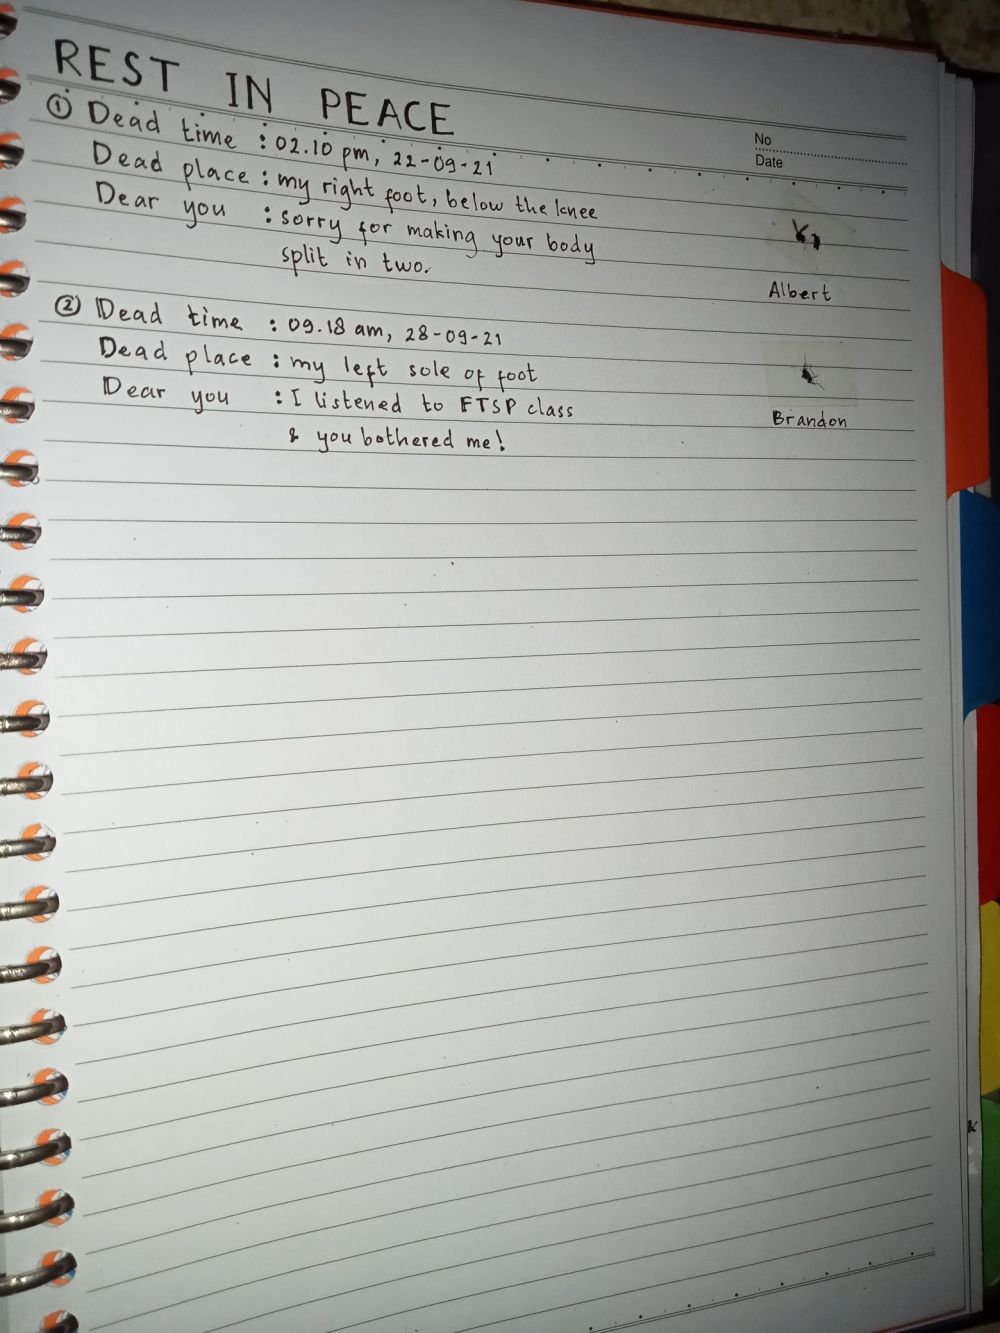 REST IN PEACE
No
Date
① Dead time : 02.10 pm, 22-09-21
Dead place : my right foot, below the knee
Dear you : sorry for making your body
split in two.
Albert
② Dead time : 09.18 am, 28-09-21
Dead place : my left sole of foot
Dear you : I listened to FTSP class
& you bothered me!
Brandon
k